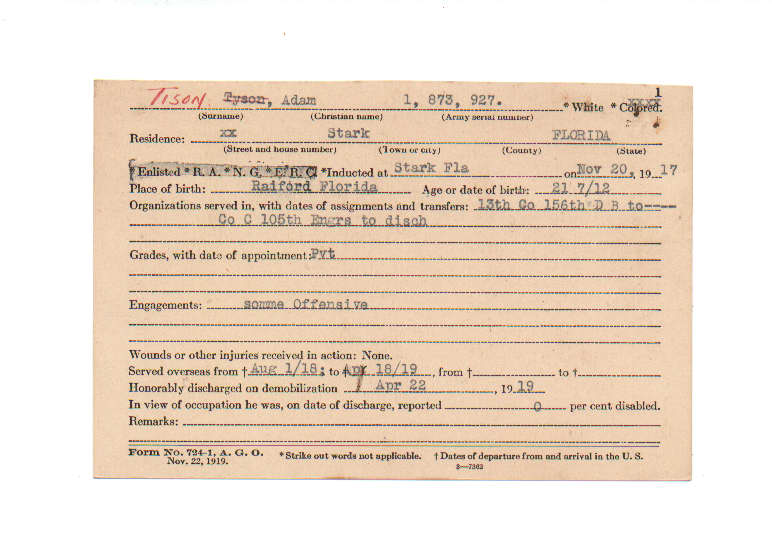 1
TISON Tyson, Adam 1, 873, 927. * White * Colored.
(Surname) (Christian name) (Army serial number)
Residence: xx Stark FLORIDA
(Street and house number) (Town or city) (County) (State)
* Enlisted * R. A. * N. G. * E. R. C. * Inducted at Stark Fla on Nov 20, 1917
Place of birth: Raiford Florida Age or date of birth: 21 7/12
Organizations served in, with dates of assignments and transfers: 13th Co 156th D B to----
Co C 105th Engrs to disch
Grades, with date of appointment: Pvt
Engagements: somme Offensive
Wounds or other injuries received in action: None.
Served overseas from † Aug 1/18; to † Apr 18/19, from † to †
Honorably discharged on demobilization Apr 22, 1919
In view of occupation he was, on date of discharge, reported 0 per cent disabled.
Remarks:
Form No. 724-1, A. G. O. * Strike out words not applicable. † Dates of departure from and arrival in the U. S.
Nov. 22, 1919. 3—7362